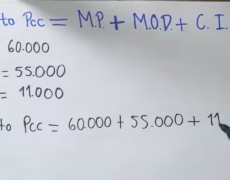 to Pcc = M.P. + M.O.D. + C.I.
60.000
= 55.000
= 11.000
to Pcc = 60.000 + 55.000 + 11